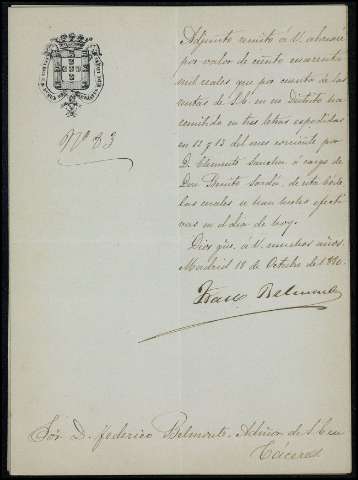 Nº 83
Adjunto remito á V. abonaré
por valor de ciento cuarenta
mil reales que por cuenta de las
rentas de S.E. en su Distrito ha
remitido en tres letras expedidas
en 12 y 13 del mes corriente por
D. Clemente Sanchez á cargo de
Don Benito de esta Córte
las cuales se han hecho efecti
vas en el dia de hoy.
Dios gũe. á V. muchos años
Madrid 18 de Octubre de 1880.
Belmonte
Sõr. D. Federico Belmonte, Admor. de S.E. en
Cáceres